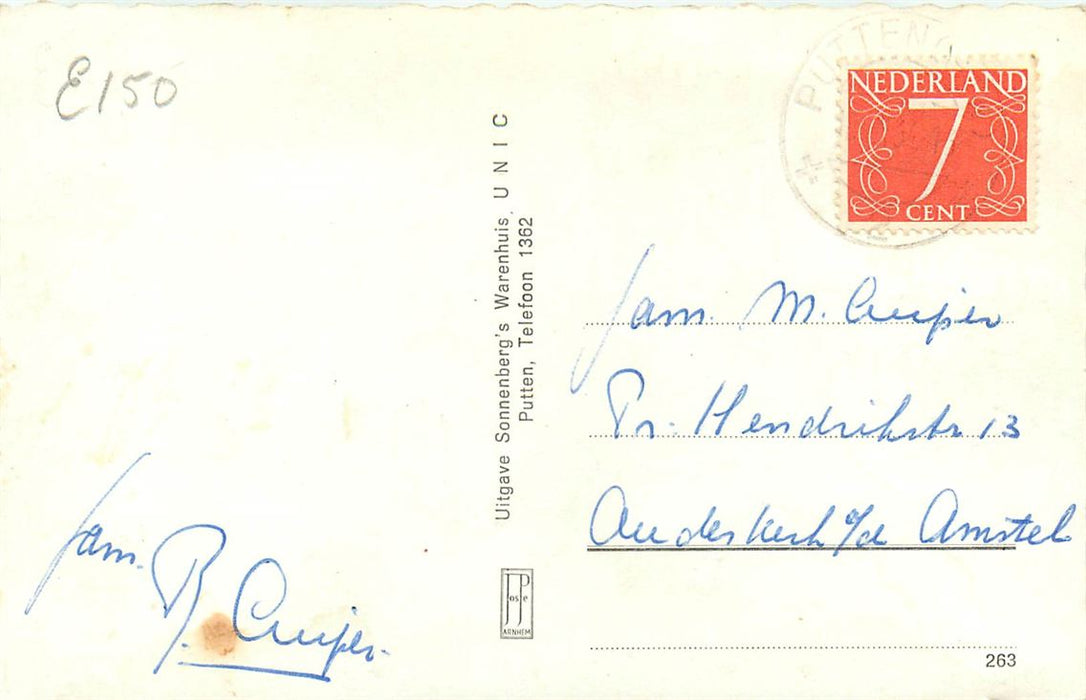 E150
PUTTEN
NEDERLAND
7
CENT
Uitgave Sonnenberg's Warenhuis, UNIC
Putten, Telefoon 1362
fam. M. Cuijper
Pr. Hendrikstr 13
Ouderkerk a/d Amstel
fam.
B. Cuijper.
JP
oste
ARNHEM
263